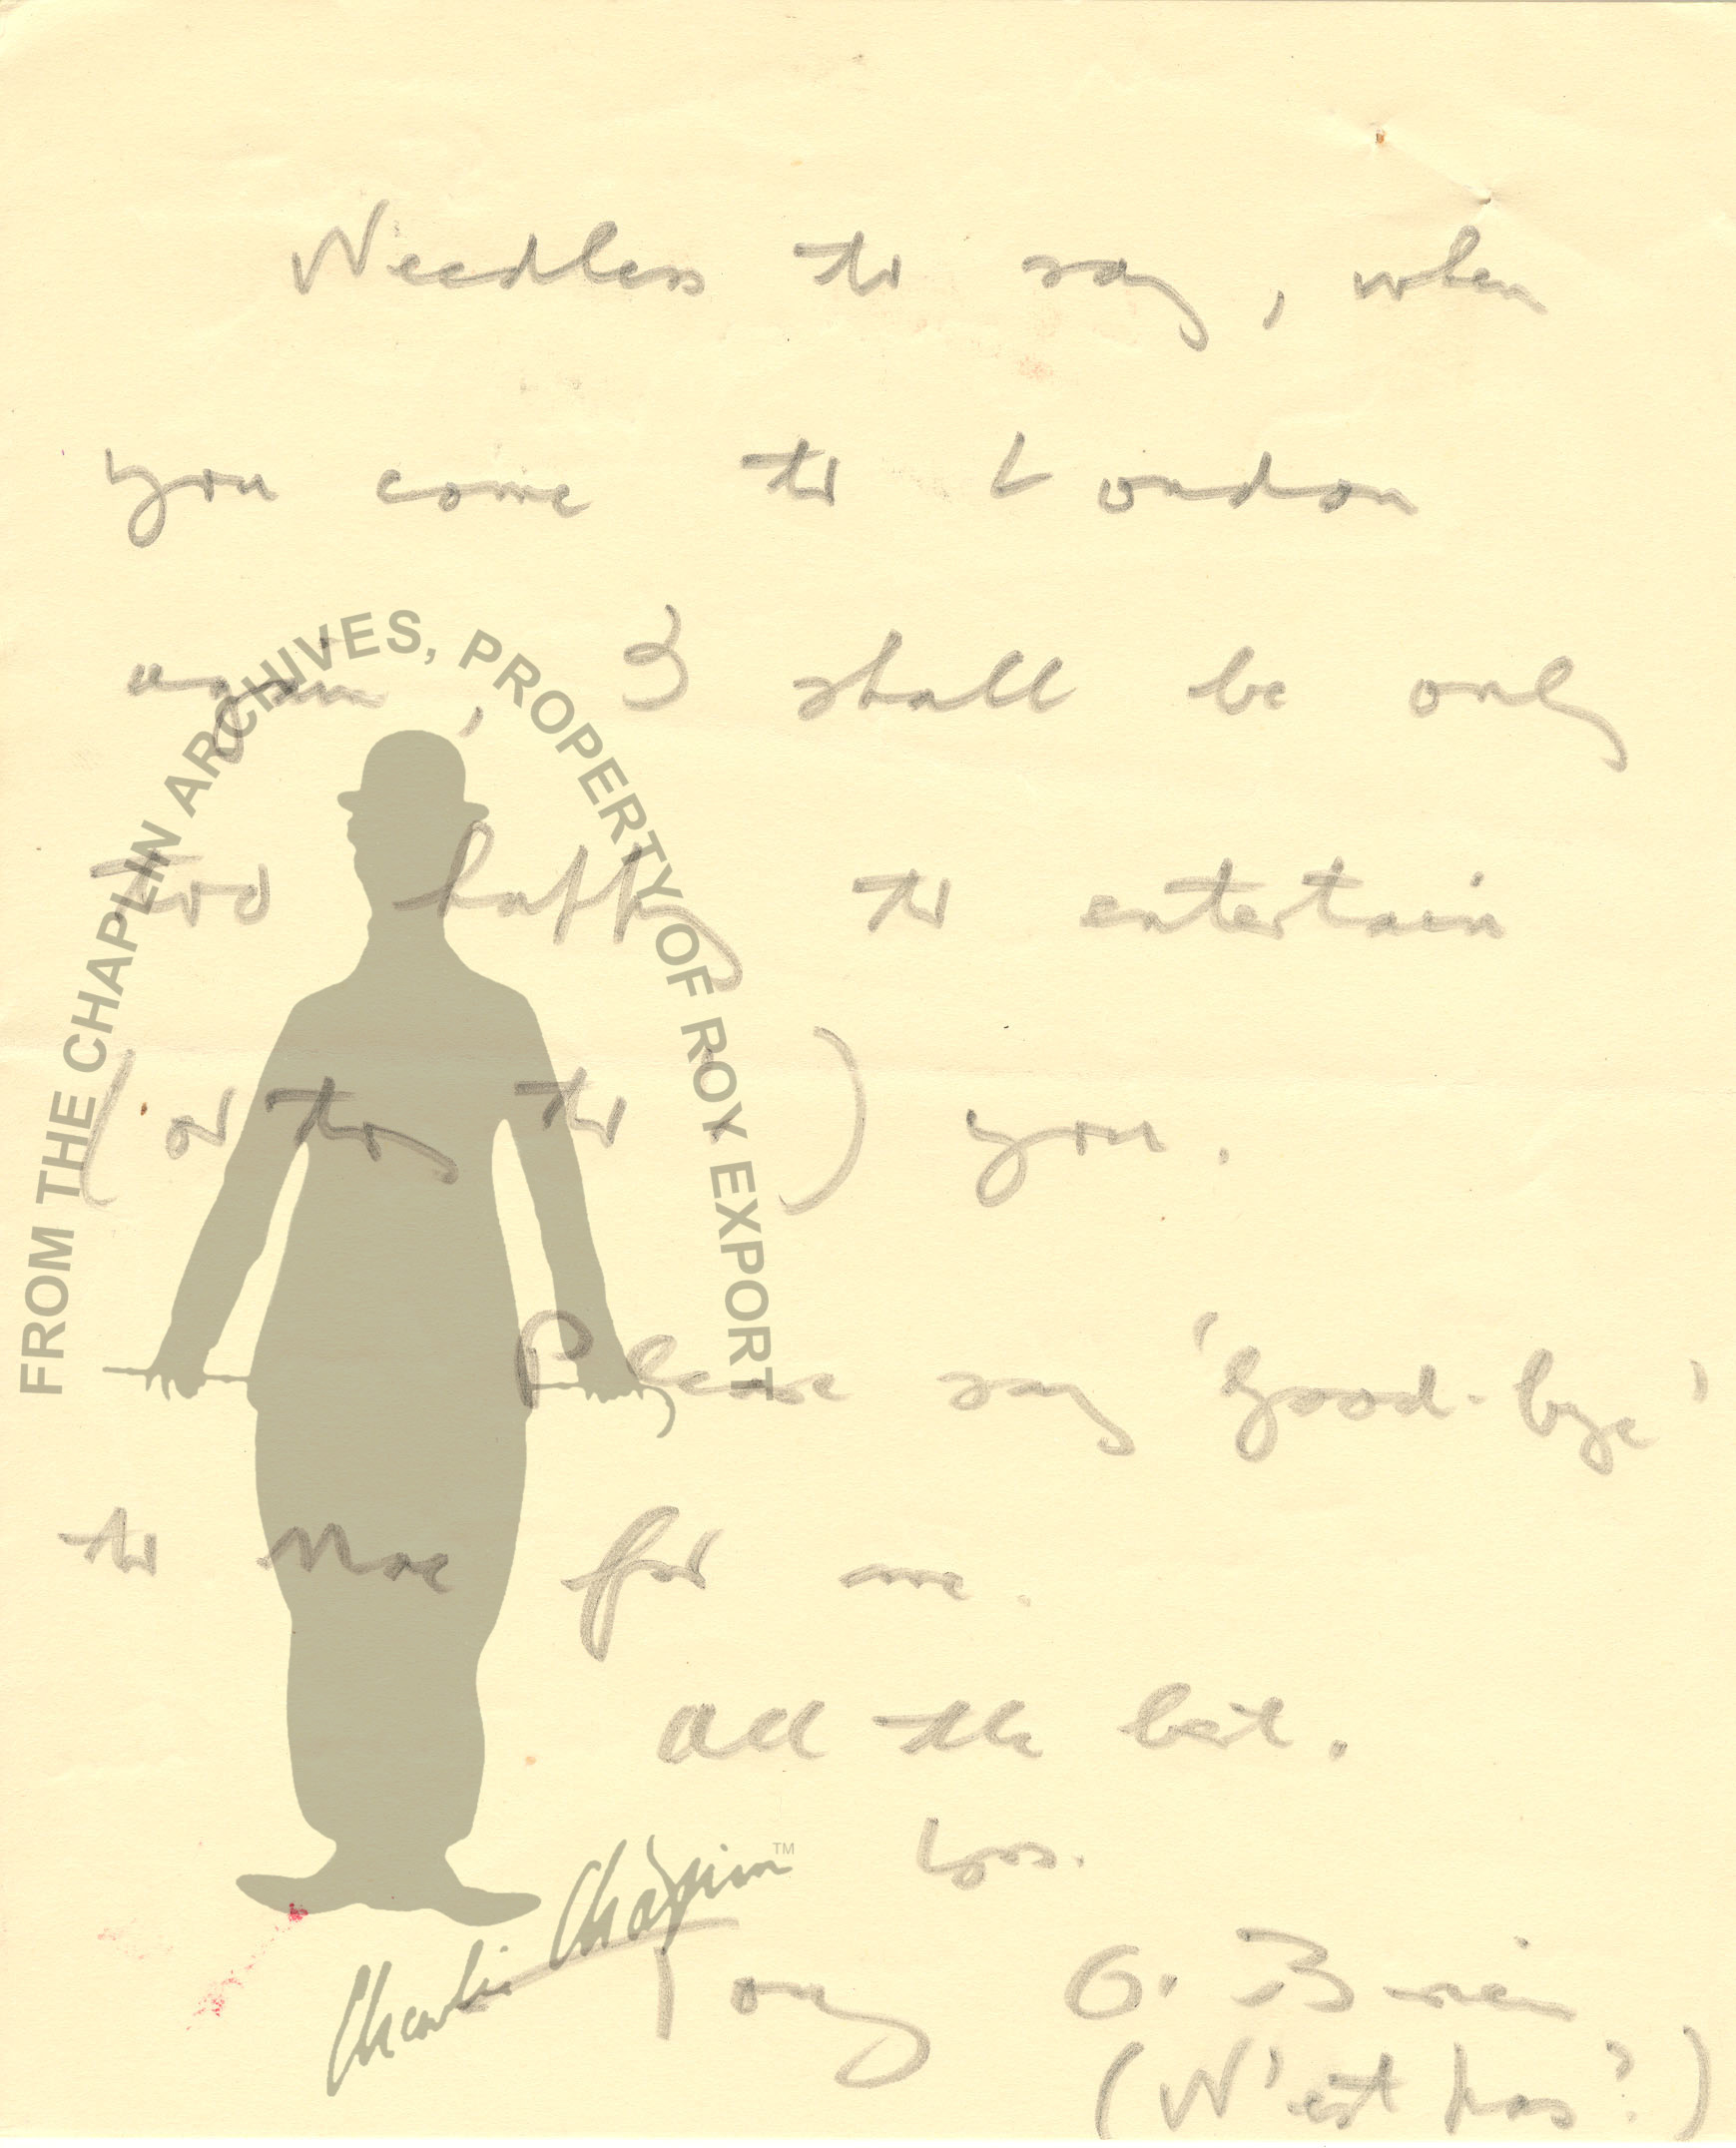 Needless to say, when
you come to London
again, I shall be only
too happy to entertain
(or try to) you.
Please say 'good-bye'
to Moe for me.
All the best.
Yrs.
Tony O. Brien
(N'est pas?)
FROM THE CHAPLIN ARCHIVES, PROPERTY OF ROY EXPORT
Charlie Chaplin™